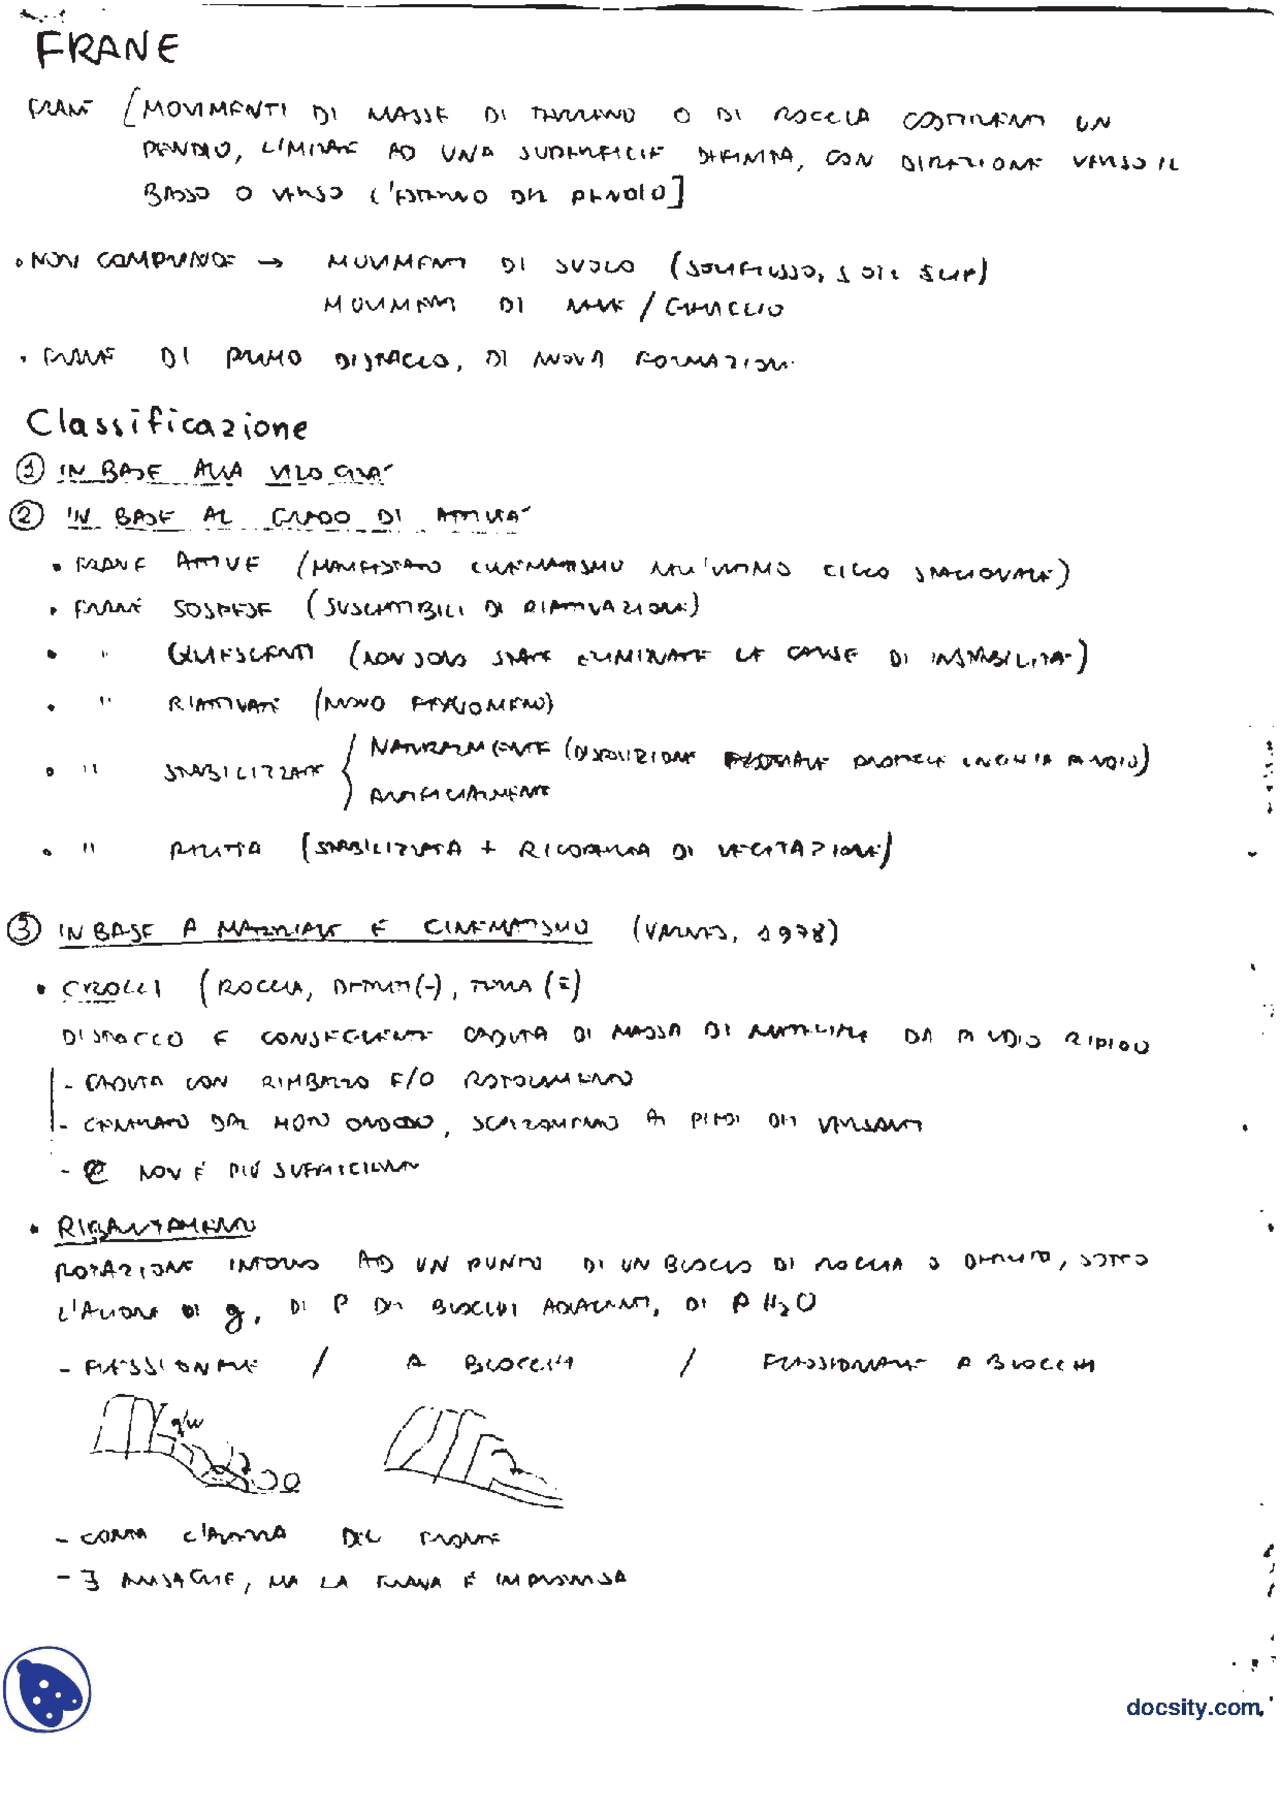 FRANE
FRANE [MOVIMENTI DI MASSE DI TERRENO O DI ROCCIA COSTITUENTI UN
PENDIO, LIMITATE AD UNA SUPERFICIE DEFINITA, CON DIREZIONE VERSO IL
BASSO O VERSO L'ESTERNO DEL PENDIO]
• NON COMPRENDE → MOVIMENTI DI SUOLO (SOLIFLUSSO, SOIL SLIP)
MOVIMENTI DI NEVE / GHIACCIO
• FRANE DI PRIMO DISTACCO, DI NUOVA FORMAZIONE
Classificazione
① IN BASE ALLA VELOCITA'
② IN BASE AL GRADO DI ATTIVITA'
• FRANE ATTIVE (MANIFESTATO CINEMATISMO NELL'ULTIMO CICLO STAGIONALE)
• FRANE SOSPESE (SUSCETTIBILI DI RIATTIVAZIONE)
• " QUIESCENTI (NON SONO STATE ELIMINATE LE CAUSE DI INSTABILITA')
• " RIATTIVATE (NUOVO FENOMENO)
• " STABILIZZATE { NATURALMENTE (DISPOSIZIONE PENDIO)
ARTIFICIALMENTE
• " RELITTA (STABILIZZATA + RICOPERTA DI VEGETAZIONE)
③ IN BASE A MATERIALE E CINEMATISMO (VARNES, 1978)
• CROLLI (ROCCIA, DETRITI(-), TERRA (=)
DISTACCO E CONSEGUENTE CADUTA DI MASSA DI MATERIALE DA PENDIO RIPIDO
- CADUTA CON RIMBALZO E/O ROTOLAMENTO
- GENERATO DAL MOTO ONDOSO, SCALZAMENTO AI PIEDI DEI VERSANTI
- C NON È PIÙ SUFFICIENTE
• RIBALTAMENTO
ROTAZIONE INTORNO AD UN PUNTO DI UN BLOCCO DI ROCCIA O DETRITO, SOTTO
L'AZIONE DI g, DI P DEI BLOCCHI ADIACENTI, DI P H₂O
- FLESSIONALE / A BLOCCHI / FLESSIONALE A BLOCCHI
- CONTA L'ALTEZZA DEL FRONTE
- ∃ AVVISAGLIE, MA LA FRANA È IMPROVVISA
docsity.com